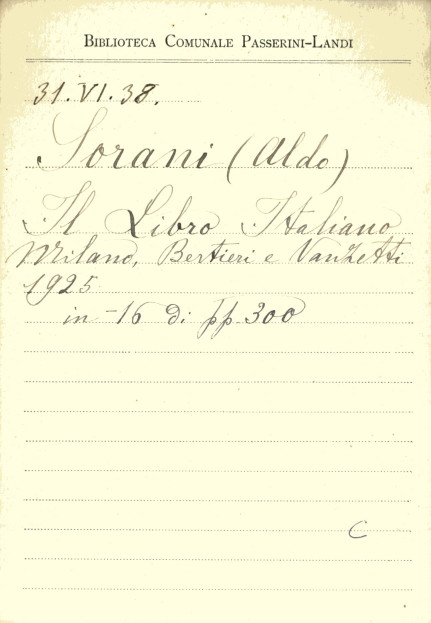 BIBLIOTECA COMUNALE PASSERINI-LANDI
31.VI.38.
Sorani (Aldo)
Il Libro Italiano
Milano, Bertieri e Vanzetti
1925
in-16 di pp 300
C